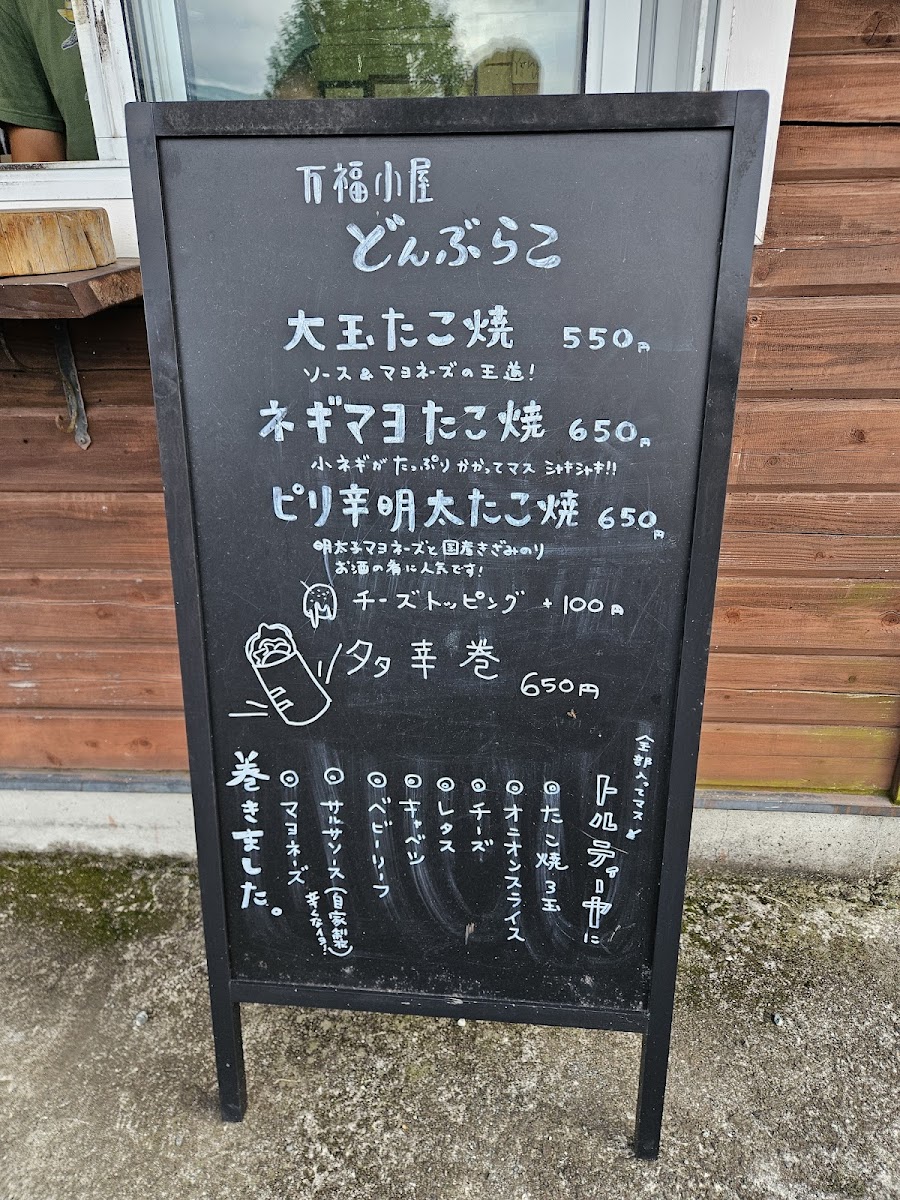 万福小屋
どんぶらこ
大玉たこ焼 550円
ソース&マヨネーズの王道!
ネギマヨたこ焼 650円
小ネギがたっぷりかかってマス シャキシャキ!!
ピリ辛明太たこ焼 650円
明太子マヨネーズと国産きざみのり
お酒の肴に人気です!
チーズトッピング +100円
タタ辛巻 650円
全部入ってマス
トルティーヤに
◎たこ焼3玉
◎オニオンスライス
◎チーズ
◎レタス
◎キャベツ
◎ベビーリーフ
◎サルサソース(自家製)
辛くないヨ!
◎マヨネーズ
巻きました。